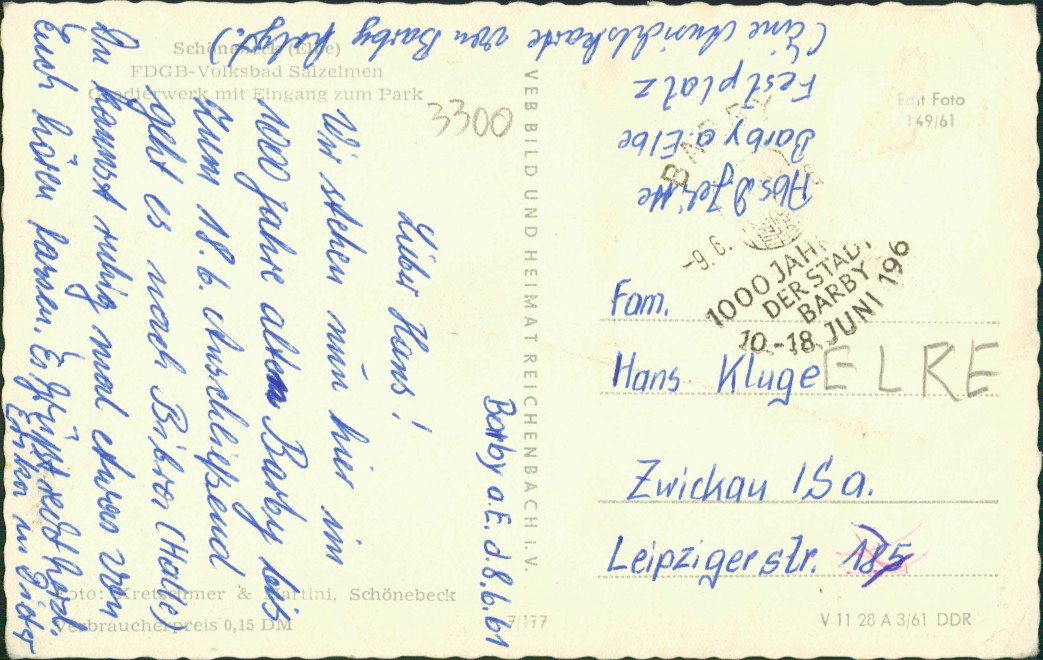 Schönebeck (Elbe)
FDGB-Volksbad Salzelmen
Gradierwerk mit Eingang zum Park
3300
Barby a.E. d. 8.6.61
Lieber Hans!
Wir stehen nun hier im
1000 Jahre alten Barby bis
zum 18.6. Anschließend
geht es nach Bibra (Halle)
Du kannst ruhig mal etwas von
Euch hören lassen. Es grüßt recht herzl.
Erika u. Dieter
(Eine Ansichtskarte von Barby folgt.)
Foto: Kretschmer & Martini, Schönebeck
Verbraucherpreis 0,15 DM
VEB BILD UND HEIMAT REICHENBACH i. V.
7/177
Abs. D.
Barby a. Elbe
Festplatz
Echt Foto
149/61
BARBY
-9.6.
1000 JAHRE
DER STADT
BARBY
10.-18. JUNI 196
Fam.
Hans Kluge
ELRE
Zwickau / Sa.
Leipziger str. 185
V 11 28 A 3/61 DDR